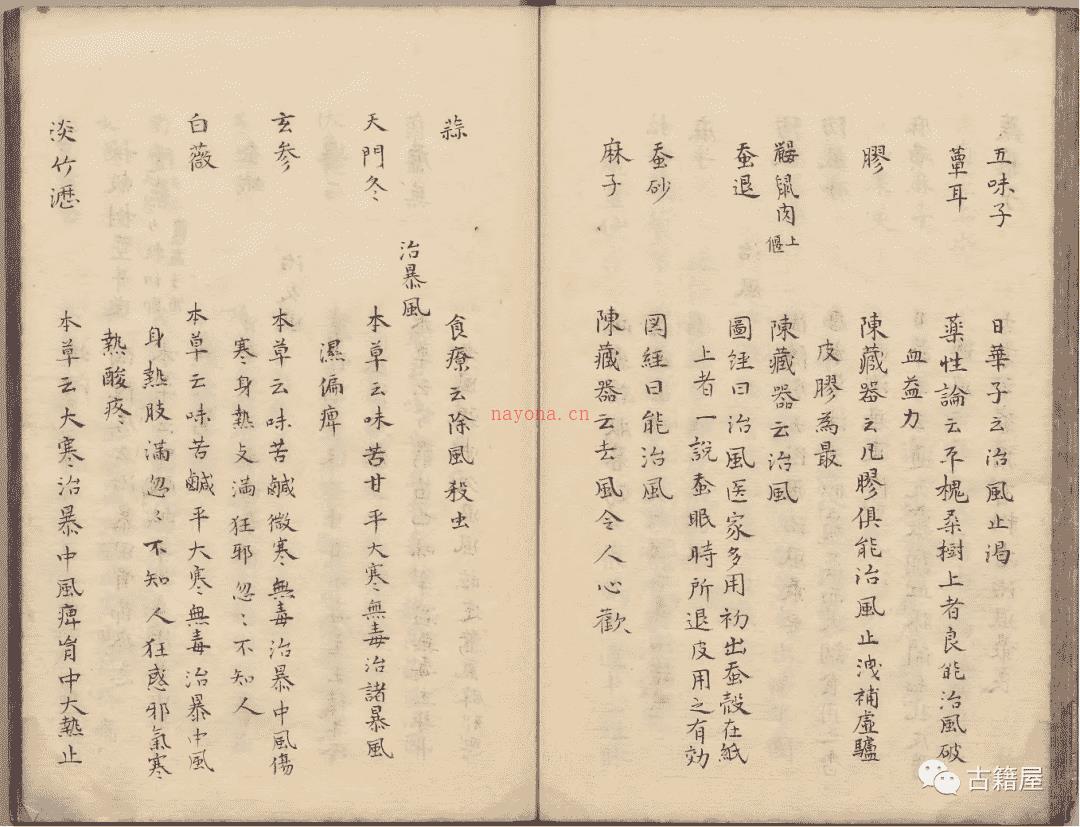 五味子 日華子云治風止渴
蕈耳 薬性論云平槐桑樹上者良能治風破
血益力
膠 陳藏器云凡膠俱能治風止洩補虛驢
皮膠為最
鼴鼠肉 上偃 陳藏器云治風
蚕退 圖経曰治風医家多用初出蚕殼在紙
上者一說蚕眠時所退皮用之有効
蚕砂 図経曰能治風
麻子 陳藏器云去風令人心歡
蒜 食療云除風殺虫
治暴風
天門冬 本草云味苦甘平大寒無毒治諸暴風
濕偏痺
玄参 本草云味苦鹹微寒無毒治暴中風傷
寒身熱支滿狂邪忽〻不知人
白薇 本草云味苦鹹平大寒無毒治暴中風
身熱肢滿忽〻不知人狂惑邪氣寒
熱酸疼
淡竹瀝 本草云大寒治暴中風痺胷中大熱止
nayona.cn
古籍屋